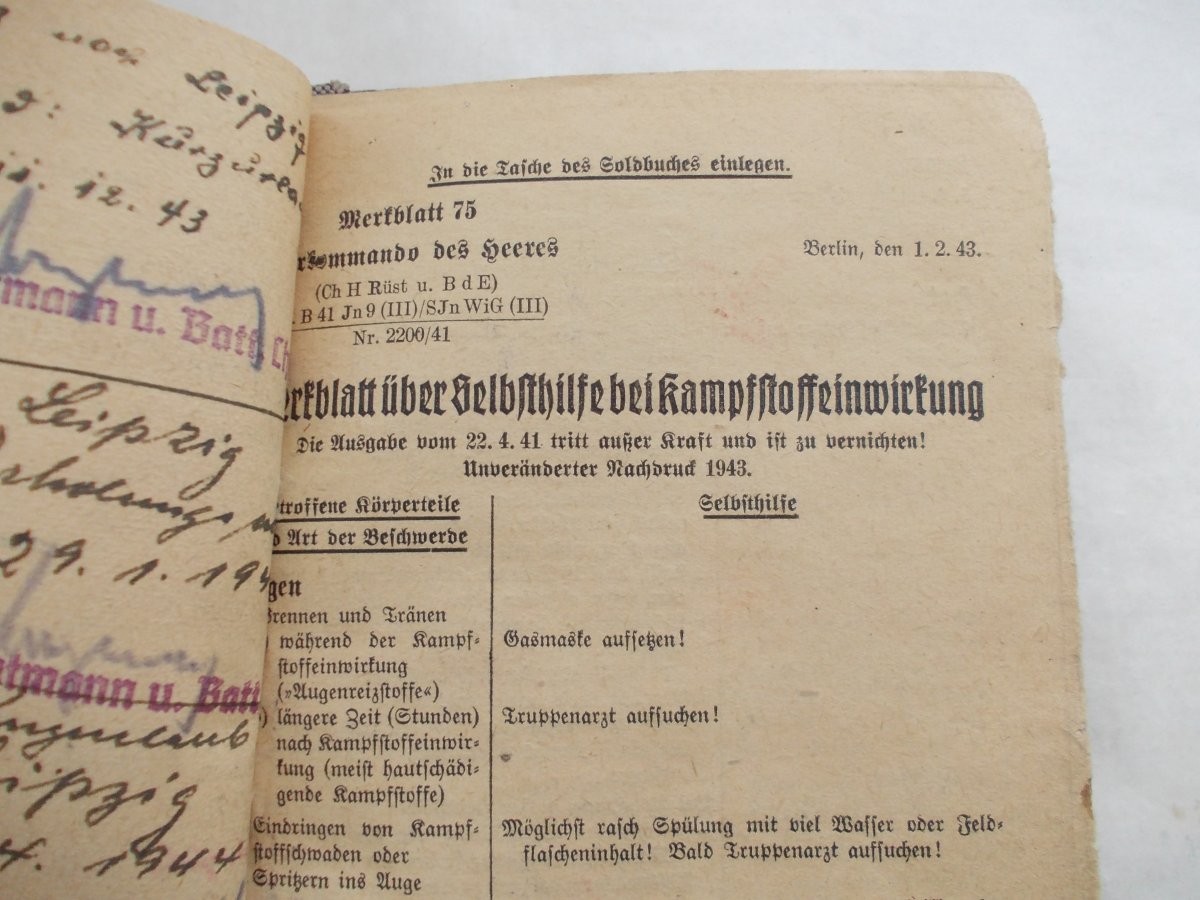 von Leipzig
Kurzurla
12. 43
mann u. Batt. Ch
Leipzig
29. 1. 194
tmann u. Batt
Leipzig
4. 1944
In die Tasche des Soldbuches einlegen.
Merkblatt 75
rkommando des Heeres
Berlin, den 1. 2. 43.
(Ch H Rüst u. B d E)
B 41 Jn 9 (III)/SJn WiG (III)
Nr. 2200/41
erkblatt über Selbsthilfe bei Kampfstoffeinwirkung
Die Ausgabe vom 22. 4. 41 tritt außer Kraft und ist zu vernichten!
Unveränderter Nachdruck 1943.
troffene Körperteile
Selbsthilfe
d Art der Beschwerde
gen
Brennen und Tränen
) während der Kampf-
Gasmaske aufsetzen!
stoffeinwirkung
(»Augenreizstoffe«)
) längere Zeit (Stunden)
Truppenarzt aufsuchen!
nach Kampfstoffeinwir-
kung (meist hautschädi-
gende Kampfstoffe)
Eindringen von Kampf-
Möglichst rasch Spülung mit viel Wasser oder Feld-
stoffschwaden oder
flascheninhalt! Bald Truppenarzt aufsuchen!
Spritzern ins Auge